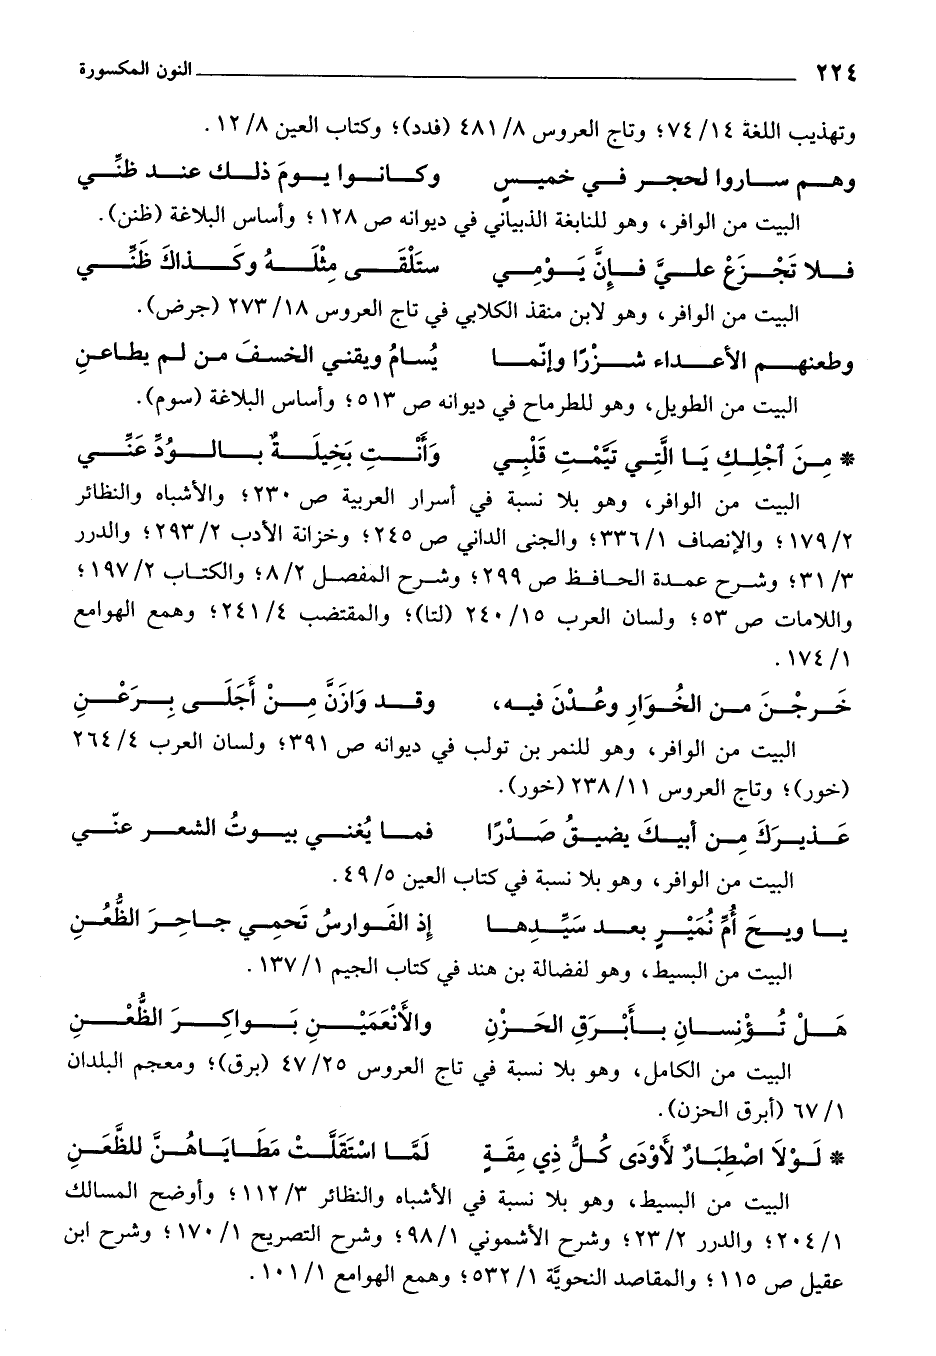 ٢٢٤ النون المكسورة
وتهذيب اللغة ١٤/ ٧٤؛ وتاج العروس ٨/ ٤٨١ (فدد)؛ وكتاب العين ٨/ ١٢.
وهم ساروا لحجر في خميسٍ وكانوا يومَ ذلك عند ظنِّي
البيت من الوافر، وهو للنابغة الذبياني في ديوانه ص ١٢٨؛ وأساس البلاغة (ظنن).
فلا تَجْزَعْ عليَّ فإنَّ يَوْمِي ستَلْقَى مِثْلَهُ وكَذاكَ ظَنِّي
البيت من الوافر، وهو لابن منقذ الكلابي في تاج العروس ١٨/ ٢٧٣ (جرض).
وطعنهم الأعداء شزْرًا وإنّما يُسامُ ويقنى الخسفَ من لم يطاعنِ
البيت من الطويل، وهو للطرماح في ديوانه ص ٥١٣؛ وأساس البلاغة (سوم).
* مِنَ ٱجْلِكِ يَا الَّتِي تَيَّمْتِ قَلْبِي وَأَنْتِ بَخِيلَةٌ بالوُدِّ عَنِّي
البيت من الوافر، وهو بلا نسبة في أسرار العربية ص ٢٣٠؛ والأشباه والنظائر
٢/ ١٧٩؛ والإنصاف ١/ ٣٣٦؛ والجنى الداني ص ٢٤٥؛ وخزانة الأدب ٢/ ٢٩٣؛ والدرر
٣/ ٣١؛ وشرح عمدة الحافظ ص ٢٩٩؛ وشرح المفصل ٢/ ٨؛ والكتاب ٢/ ١٩٧؛
واللامات ص ٥٣؛ ولسان العرب ١٥/ ٢٤٠ (لتا)؛ والمقتضب ٤/ ٢٤١؛ وهمع الهوامع
١/ ١٧٤.
خَرجْنَ من الخُوَارِ وعُدْنَ فيه، وقد وَازَنَّ مِنْ أَجَلَى بِرَعْنِ
البيت من الوافر، وهو للنمر بن تولب في ديوانه ص ٣٩١؛ ولسان العرب ٤/ ٢٦٤
(خور)؛ وتاج العروس ١١/ ٢٣٨ (خور).
عَذيرَكَ مِن أبيكَ يضيقُ صَدْرًا فما يُغني بيوتُ الشعر عنّي
البيت من الوافر، وهو بلا نسبة في كتاب العين ٥/ ٤٩.
يا ويحَ أُمِّ نُمَيْرٍ بعد سَيِّدِها إذ الفَوارسُ تَحمِي جاحِرَ الظُّعُنِ
البيت من البسيط، وهو لفضالة بن هند في كتاب الجيم ١/ ١٣٧.
هَلْ تُؤْنِسانِ بأَبْرَقِ الحَزْنِ والأَنْعَمَيْنِ بَواكِرَ الظُّعْنِ
البيت من الكامل، وهو بلا نسبة في تاج العروس ٢٥/ ٤٧ (برق)؛ ومعجم البلدان
١/ ٦٧ (أبرق الحزن).
* لَوْلَا اصْطِبَارٌ لأَوْدَى كُلُّ ذِي مِقَةٍ لَمَّا اسْتَقَلَّتْ مَطَايَاهُنَّ لِلظَّعَنِ
البيت من البسيط، وهو بلا نسبة في الأشباه والنظائر ٣/ ١١٢؛ وأوضح المسالك
١/ ٢٠٤؛ والدرر ٢/ ٢٣؛ وشرح الأشموني ١/ ٩٨؛ وشرح التصريح ١/ ١٧٠؛ وشرح ابن
عقيل ص ١١٥؛ والمقاصد النحويَّة ١/ ٥٣٢؛ وهمع الهوامع ١/ ١٠١.